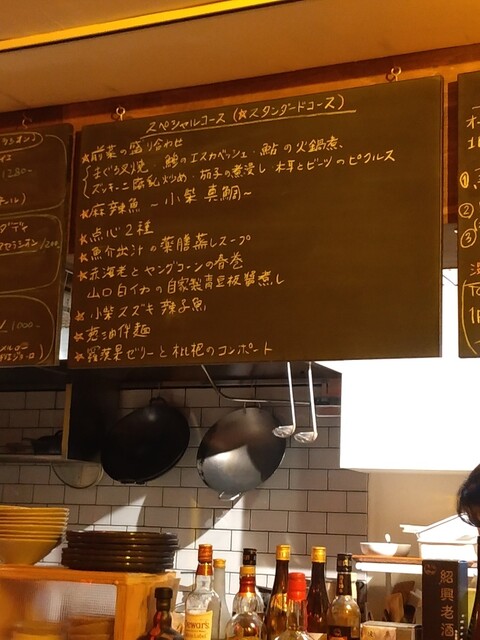 スペシャルコース (★スタンダードコース)
★前菜の盛り合わせ
まぐろ叉焼・鯵のエスカベッシュ・鮎の火鍋煮、
ズッキーニ腐乳炒め・茄子の煮浸し 木耳とビーツのピクルス
★麻辣魚 ～小柴 真鯛～
★点心2種
★魚介出汁の薬膳蒸しスープ
★赤海老とヤングコーンの春巻
山口白イカの自家製青豆板醤煮し
★小柴スズキ 辣子魚
★葱油伴麺
★羅漢果ゼリーと枇杷のコンポート
1280-
1200-
1000-
①
②
③
Dewar's
紹興老酒